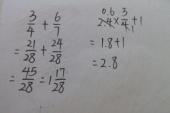 3/4 + 6/7
= 21/28 + 24/28
= 45/28 = 1 17/28
2.4 × 3/4 + 1
0.6 1
= 1.8 + 1
= 2.8